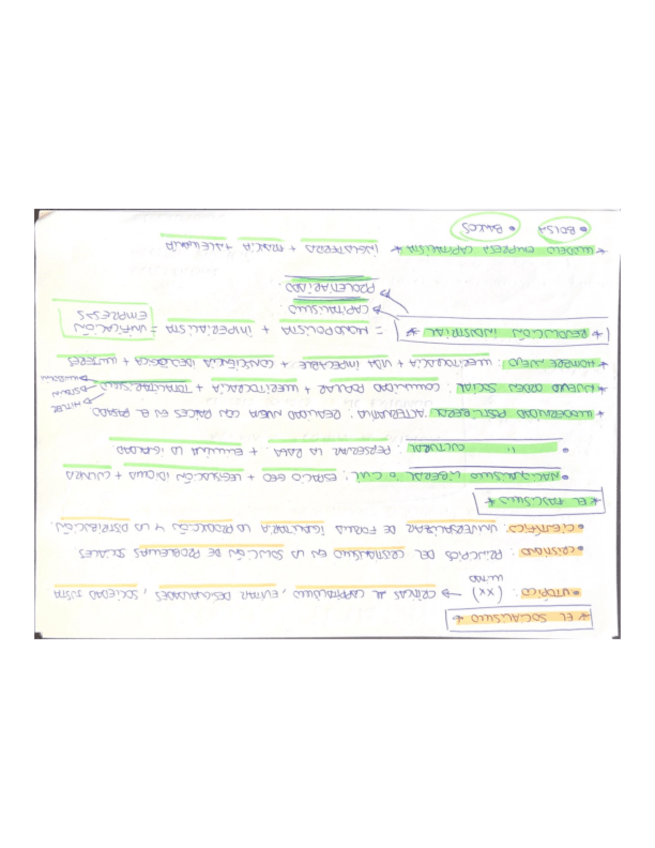 * EL SOCIALISMO *
• UTÓPICO: (XX) → CRÍTICAS AL CAPITALISMO, EVITAR DESIGUALDADES, SOCIEDAD JUSTA
• CRISTIANO: PRINCIPIOS DEL CRISTIANISMO EN LA SOLUCIÓN DE PROBLEMAS SOCIALES
• CIENTÍFICO: UNIVERSALIZAR DE FORMA IGUALITARIA LA PRODUCCIÓN Y LA DISTRIBUCIÓN
* EL FASCISMO *
• NACIONALISMO LIBERAL o CIVIL: ESPACIO GEO + LEGISLACIÓN + IDIOMA + CULTURA
• " CULTURAL: PERSERVAR LA RAZA + ELIMINA LA IGUALDAD
* MODERNIDAD POST-LIBERAL: ALTERNATIVA: REALIDAD NUEVA CON RAÍCES EN EL PASADO
* NUEVO ORDEN SOCIAL: COMUNIDAD POPULAR + MERITOCRACIA + TOTALITARISMO → HITLER
→ STALIN
→ MUSSOLINI
* HOMBRE NUEVO: MERITOCRACIA + VIDA IMPECABLE + CONSCIENCIA IDEOLÓGICA + MUJERES
* REVOLUCIÓN INDUSTRIAL * = MONOPOLISTA + IMPERIALISTA = UNIFICACIÓN EMPRESAS
→ CAPITALISMO.
→ PROLETARIADO.
* MODELO EMPRESA CAPITALISTA * INGLATERRA + FRANCIA + ALEMANIA
• BOLSA • BANCOS